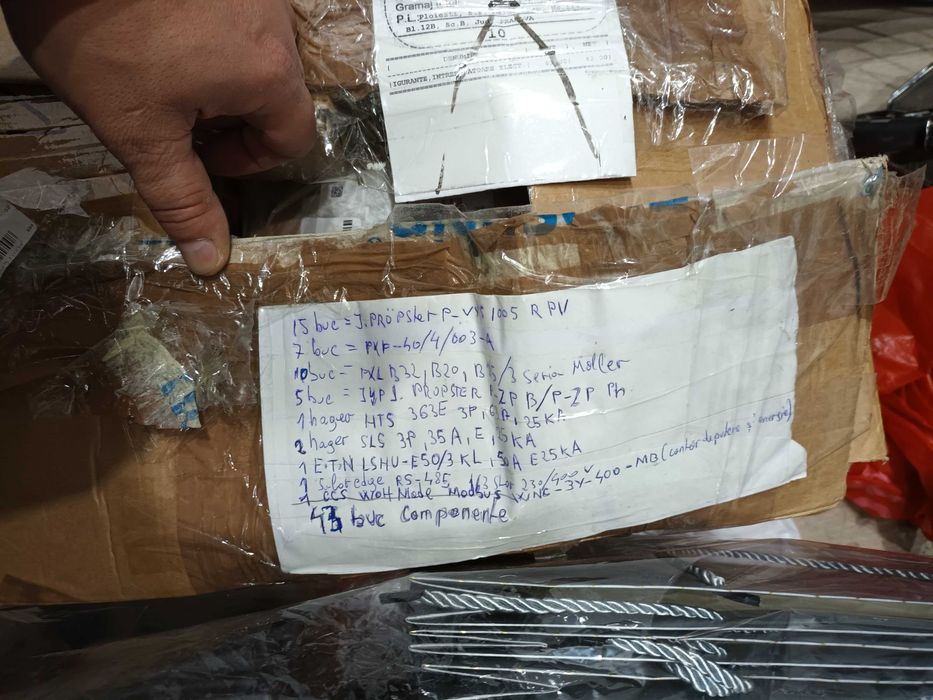 Gramaj
P.L. Ploiesti,
Bl.12B, Sc.B, Jud. PRAHOVA
10
15 buc = J. PRÖPSTER P-VMS 1005 R PV
7 buc = PXF-40/4/003-A
10 buc = PXL B32, B20, B16/3 Seria Moller
5 buc = TYP J. PROPSTER P-ZP B/P-ZP Ph
1 hager HTS 363E 3P, 25 KA
2 hager SLS 3P, 35 A, E, 25 KA
1 E.T.N LSHU-E50/3 KL, 50 A E25KA
1 Solar edge RS-485 230/400 V
1 CCS WattNode Modbus WNC-3Y-400-MB (contor de putere și energie)
43 buc Componente